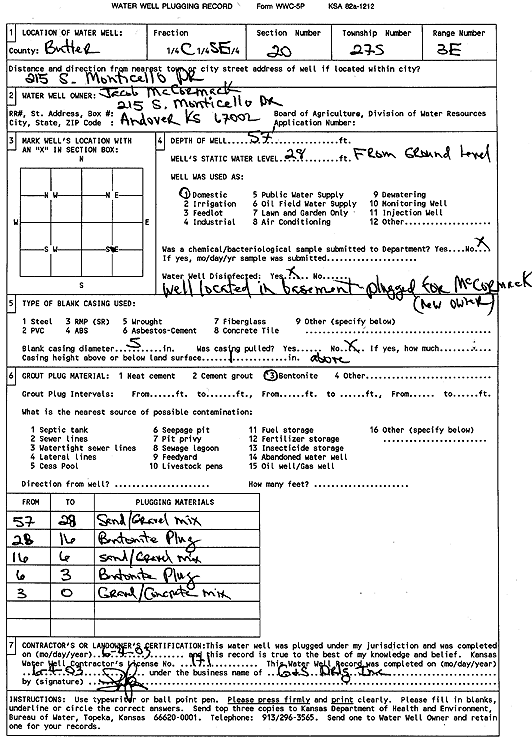 WATER WELL PLUGGING RECORD Form WWC-5P KSA 82a-1212
1 LOCATION OF WATER WELL: Fraction Section Number Township Number Range Number
County: Butler 1/4 C 1/4 SE 1/4 20 27S 3E
Distance and direction from nearest town or city street address of well if located within city?
215 S. Monticello DR
2 WATER WELL OWNER: Jacob McCormack
215 S. Monticello DR
RR#, St. Address, Box #: Board of Agriculture, Division of Water Resources
City, State, ZIP Code : Andover KS 67002 Application Number:
3 MARK WELL'S LOCATION WITH AN "X" IN SECTION BOX:
N
N W N E
W E
S W S E
S
4 DEPTH OF WELL.....57.....ft.
WELL'S STATIC WATER LEVEL.28.....ft. From Ground Level
WELL WAS USED AS:
1 Domestic 5 Public Water Supply 9 Dewatering
2 Irrigation 6 Oil Field Water Supply 10 Monitoring Well
3 Feedlot 7 Lawn and Garden Only 11 Injection Well
4 Industrial 8 Air Conditioning 12 Other..........
Was a chemical/bacteriological sample submitted to Department? Yes....No...X
If yes, mo/day/yr sample was submitted..............
Water Well Disinfected: Yes.X.. No......
Well located in basement - plugged for McCormack
(new owner)
5 TYPE OF BLANK CASING USED:
1 Steel 3 RMP (SR) 5 Wrought 7 Fiberglass 9 Other (specify below)
2 PVC 4 ABS 6 Asbestos-Cement 8 Concrete Tile
Blank casing diameter....5.....in. Was casing pulled? Yes..... No..X.. If yes, how much..........
Casing height above or below land surface..........in. above
6 GROUT PLUG MATERIAL: 1 Neat cement 2 Cement grout 3 Bentonite 4 Other..........
Grout Plug Intervals: From.....ft. to.....ft., From..... ft. to .....ft., From..... to.....ft.
What is the nearest source of possible contamination:
1 Septic tank 6 Seepage pit 11 Fuel storage 16 Other (specify below)
2 Sewer lines 7 Pit privy 12 Fertilizer storage
3 Watertight sewer lines 8 Sewage lagoon 13 Insecticide storage
4 Lateral lines 9 Feedyard 14 Abandoned water well
5 Cess Pool 10 Livestock pens 15 Oil well/Gas well
Direction from well? .................. How many feet? ..................
FROM TO PLUGGING MATERIALS
57 28 Sand/Gravel mix
28 16 Bentonite Plug
16 6 Sand/Gravel mix
6 3 Bentonite Plug
3 0 Gravel/Concrete mix
7 CONTRACTOR'S OR LANDOWNER'S CERTIFICATION:This water well was plugged under my jurisdiction and was completed
on (mo/day/year)....6-4-03.... and this record is true to the best of my knowledge and belief. Kansas
Water Well Contractor's License No. ...171... This Water Well Record was completed on (mo/day/year)
6-4-03 under the business name of G&S Drlg Inc
by (signature)
INSTRUCTIONS: Use typewriter or ball point pen. Please press firmly and print clearly. Please fill in blanks,
underline or circle the correct answers. Send top three copies to Kansas Department of Health and Environment,
Bureau of Water, Topeka, Kansas 66620-0001. Telephone: 913/296-3565. Send one to Water Well Owner and retain
one for your records.